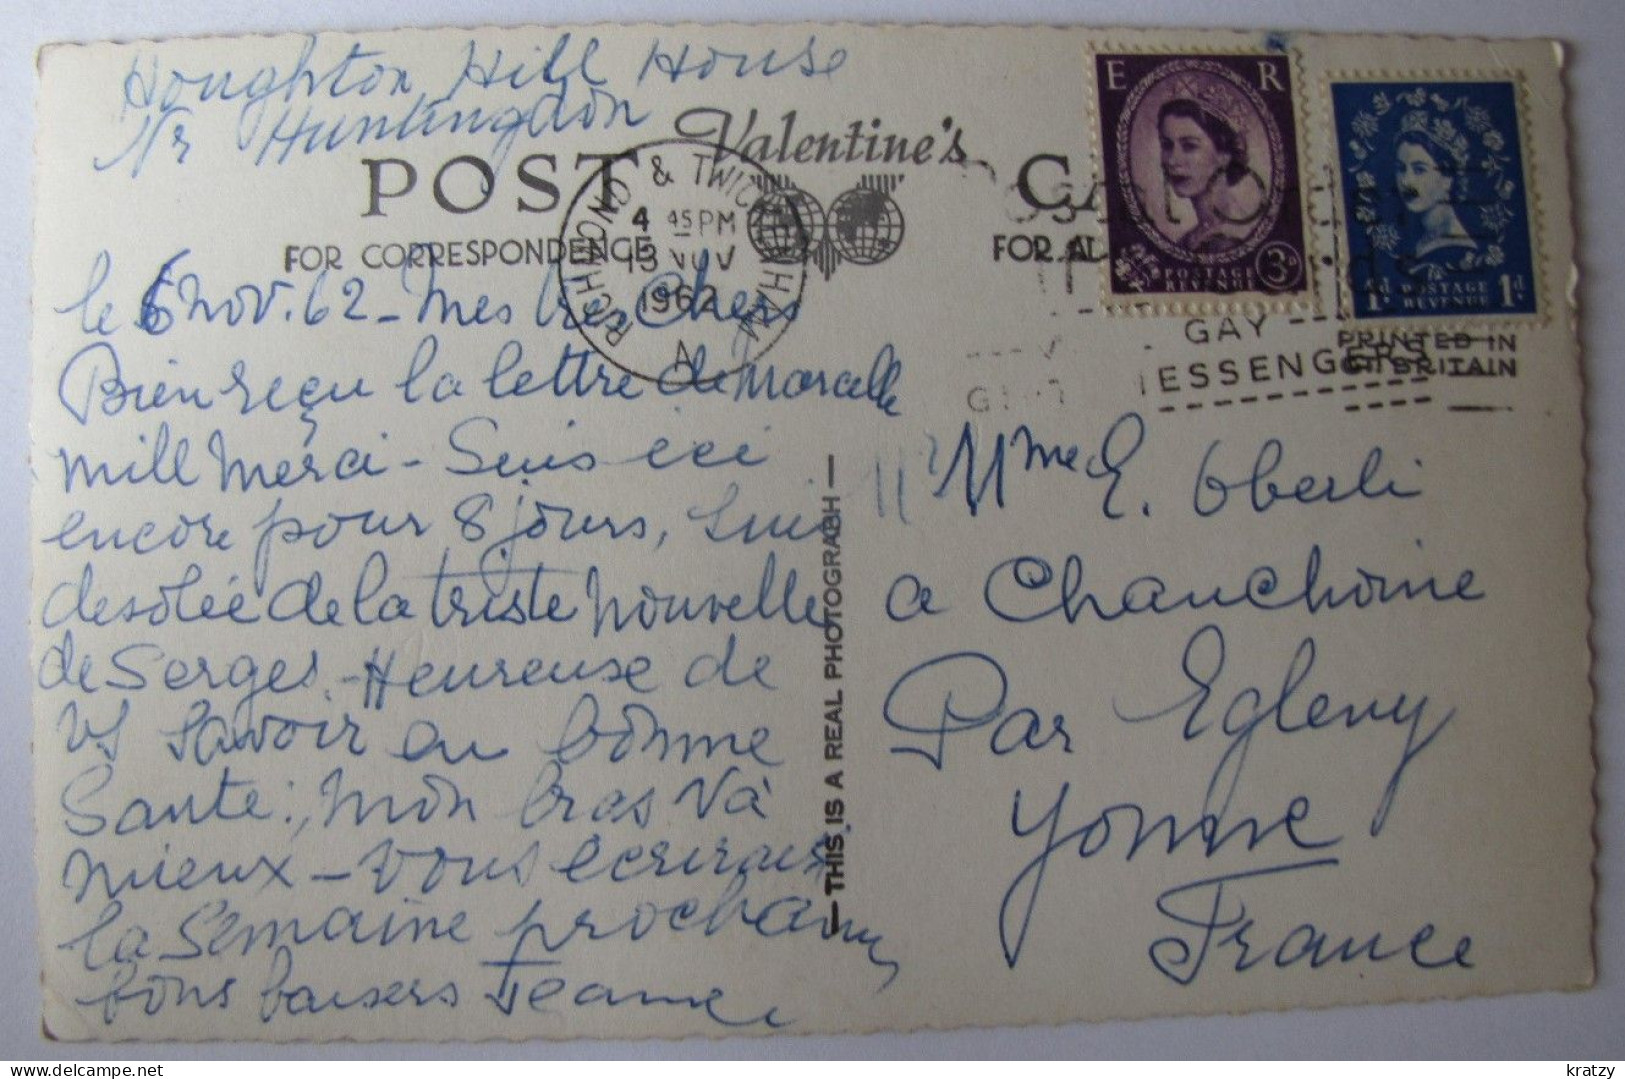 Houghton Hill House
Nr Huntingdon
Valentine's
POST CARD
FOR CORRESPONDENCE
FOR AD
RICHMOND & TWICKENHAM
4 45 PM
13 NOV
1962
A
E R
3D
POSTAGE
REVENUE
1D. POSTAGE 1D.
REVENUE
GAY
MESSENGERS
PRINTED IN
GT. BRITAIN
le 6 Nov. 62 - Mes tres Chers
Bien reçu la lettre de Marcelle
mill merci - Suis ici
encore pour 8 jours, suis
desolée de la triste nouvelle
de Serges. - Heureuse de
vs savoir en bonne
Santé; mon bras va
mieux - vous écrirai
la semaine prochaine
bons baisers Jeanne
THIS IS A REAL PHOTOGRAPH
Mme E. Oberli
a Chauchoine
Par Egleny
Yonne
France
kratzy